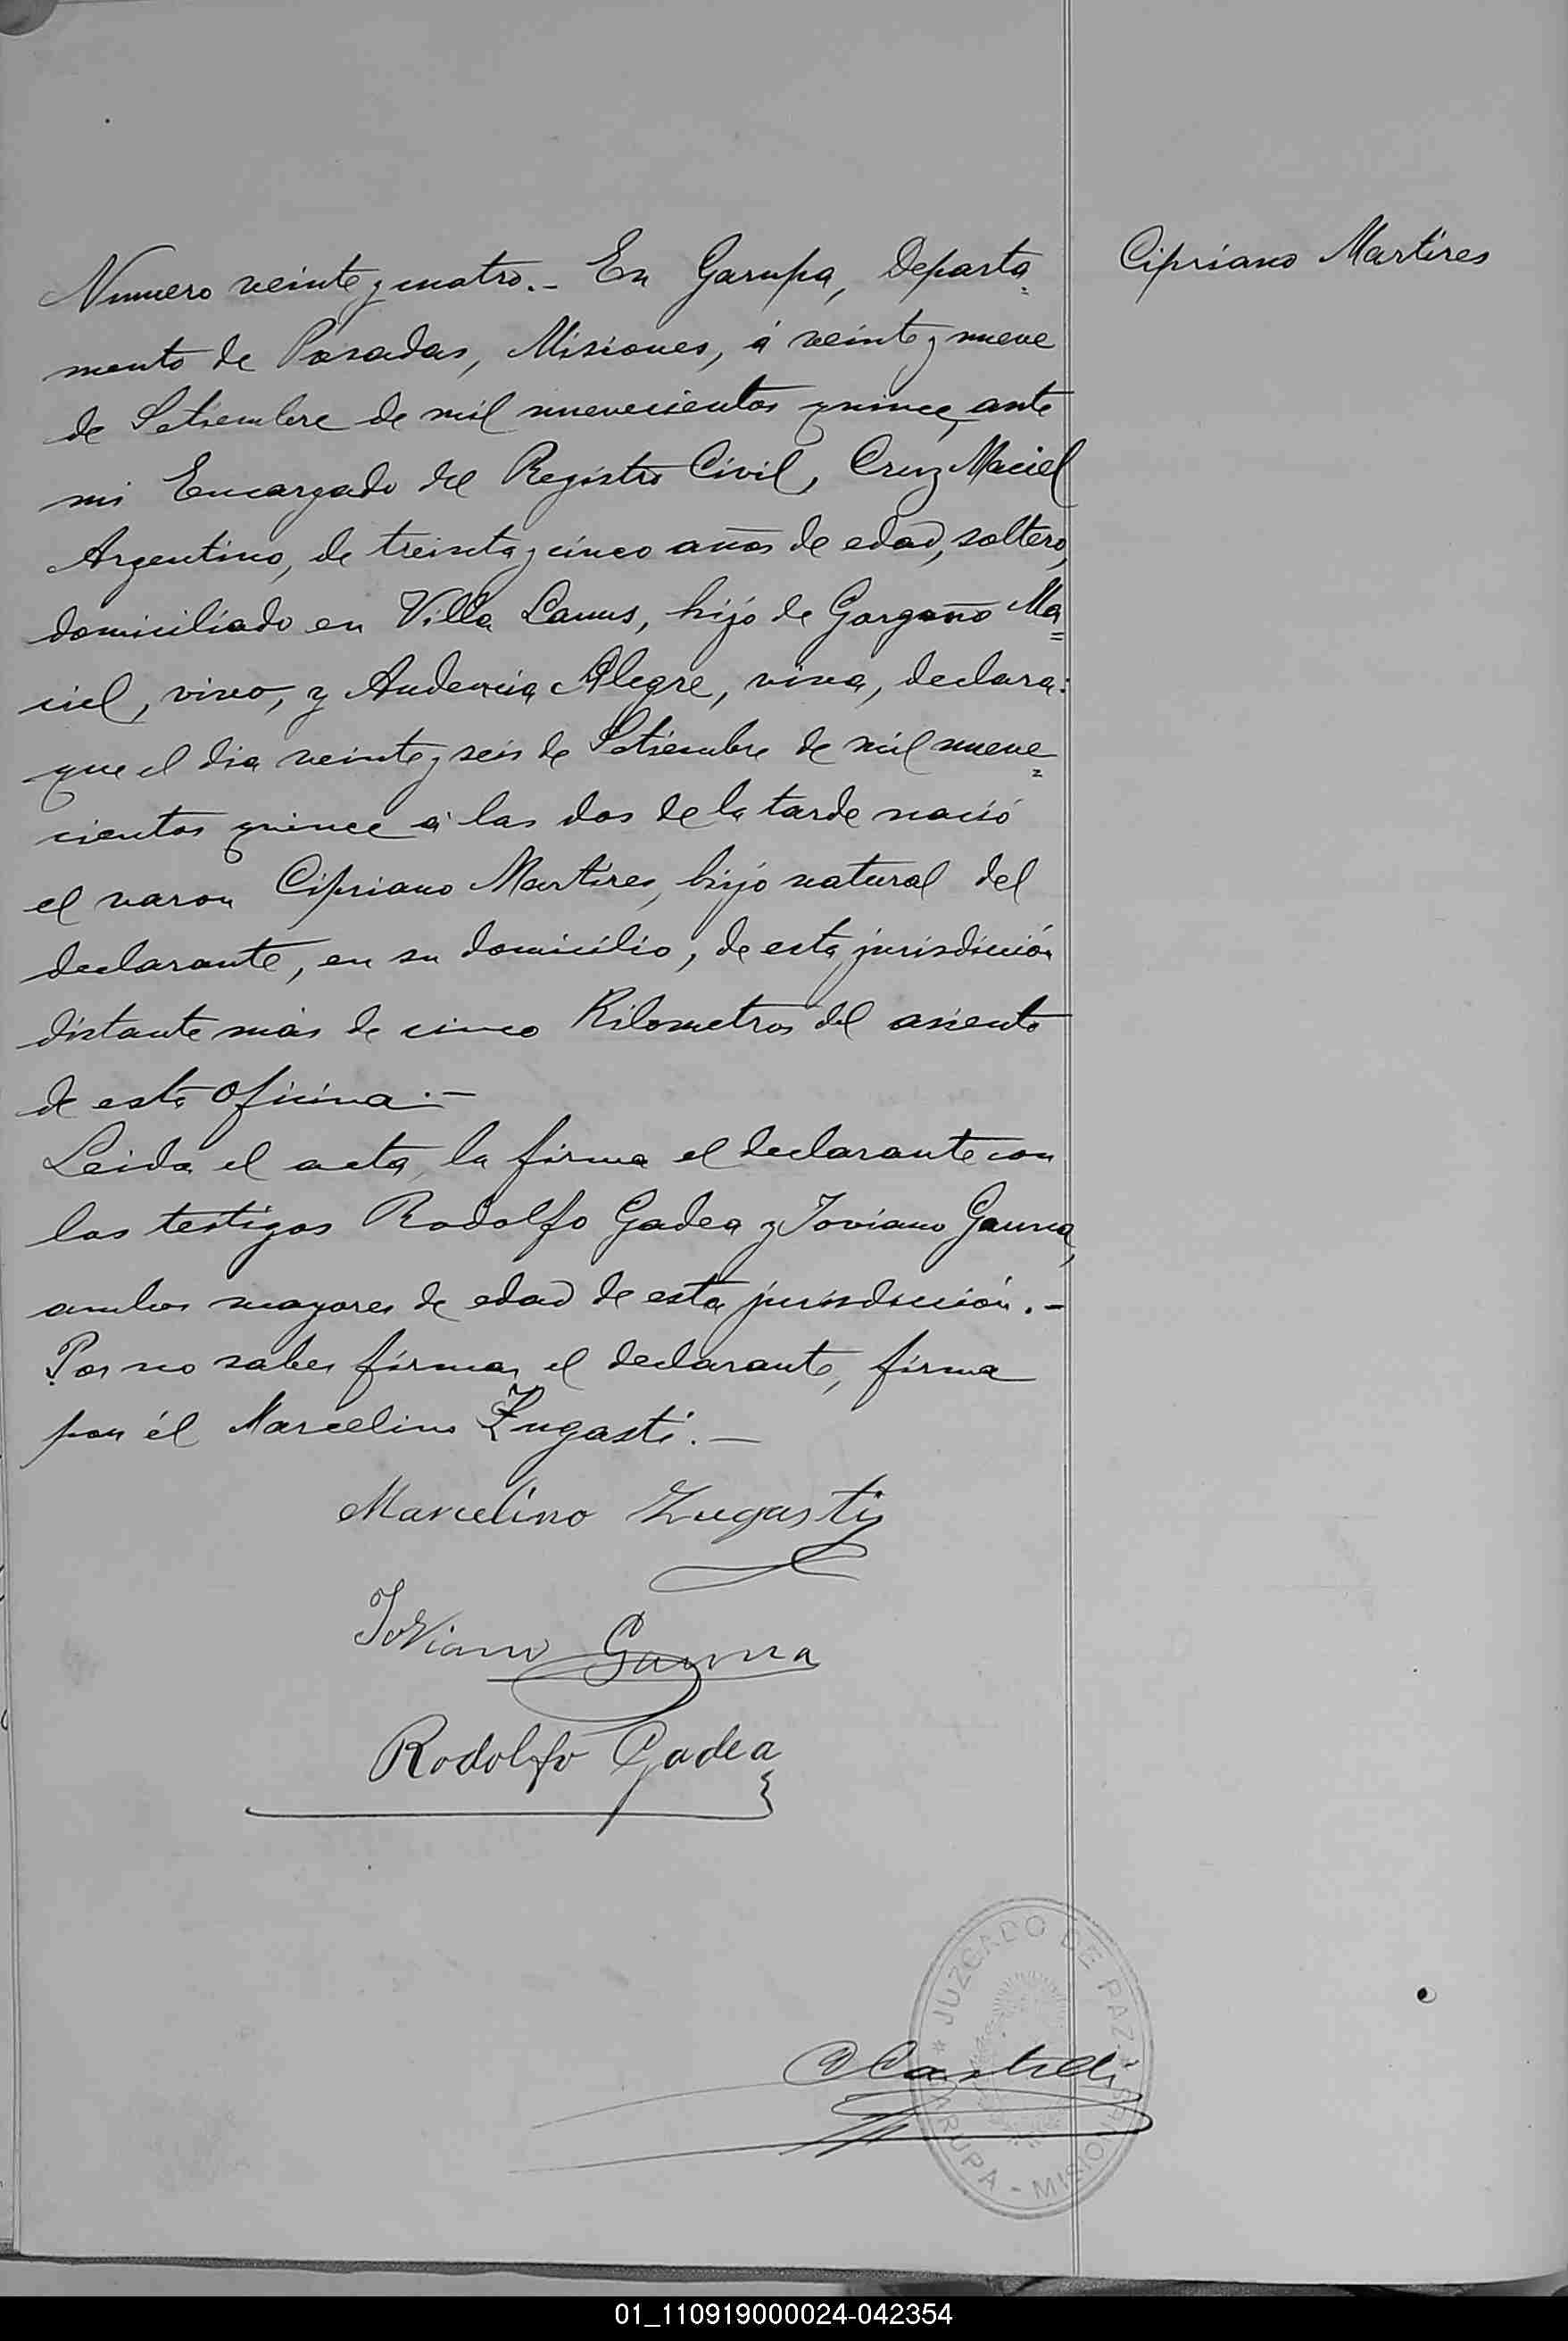 Cipriano Martires
Numero veinte y cuatro.- En Garupa, Departa=
mento de Posadas, Misiones, á veinte y nueve
de Setiembre de mil nuevecientos quince, ante
mi Encargado del Registro Civil, Cruz Maciel
Argentino, de treinta y cinco años de edad, soltero,
domiciliado en Villa Lanus, hijo de Gorgonio Ma=
ciel, vivo, y Audencia Alegre, viva, declara:
que el dia veinte y seis de Setiembre de mil nueve=
cientos quince á las dos de la tarde nació
el varon Cipriano Martires, hijo natural del
declarante, en su domicilio, de esta jurisdición
distante más de cinco Kilometros del asiento
de esta oficina.-
Leida el acta, la firma el declarante con
los testigos Rodolfo Gadea y Joviano Gauna,
ambos mayores de edad de esta jurisdicción.-
Por no saber firmar el declarante, firma
por él Marcelino Zugasti.-
Marcelino Zugasti
Joviano Gauna
Rodolfo Gadea
JUZGADO DE PAZ
GARUPA - MISIONES
01_110919000024-042354